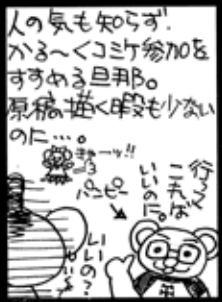 人の気も知らず、
かる〜くコミケ参加を
すすめる旦那。
原稿描く暇も少ない
のに…。
きゃーっ!!
パンピー
行って
これば
いいのに。
いいの?